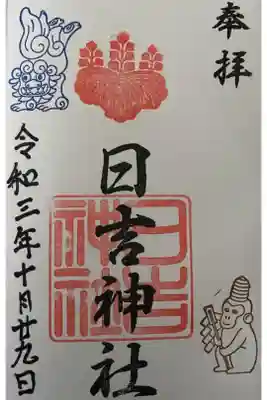 奉拝
日吉神社
日吉神社
令和三年十月廿九日